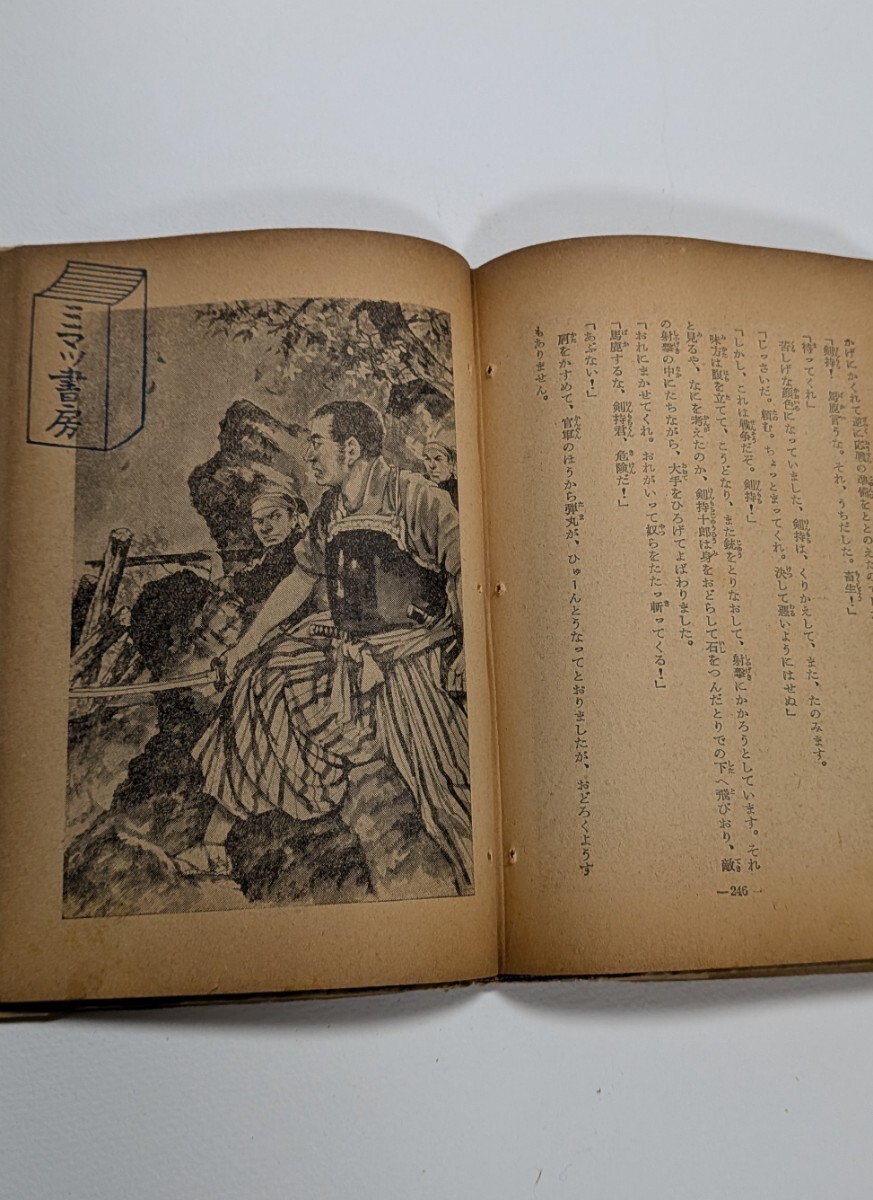 かげにかくれて逆に応戦の準備をととのえたので
「剣持! 馬鹿言うな。それ、うちだした。畜生!」
「待ってくれ」
苦しげな顔色になっていました、剣持は、くりかえして、また、たのみます。
「じっさいだ。頼む。ちょっとまってくれ。決して悪いようにはせぬ」
「しかし、これは戦争だぞ。剣持!」
味方は腹を立てて、こうどなり、また銃をとりなおして、射撃にかかろうとしています。それ
と見るや、なにを考えたのか、剣持十郎は身をおどらして石をつんだとりでの下へ飛びおり、敵
の射撃の中にたちながら、大手をひろげてよばわりました。
「おれにまかせてくれ。おれがいって奴らをたたっ斬ってくる!」
「馬鹿するな、剣持君、危険だ!」
「あぶない!」
肩をかすめて、官軍のほうから弾丸が、ひゅーんとうなってとおりましたが、おどろくようす
もありません。
—246—
ミマツ書房